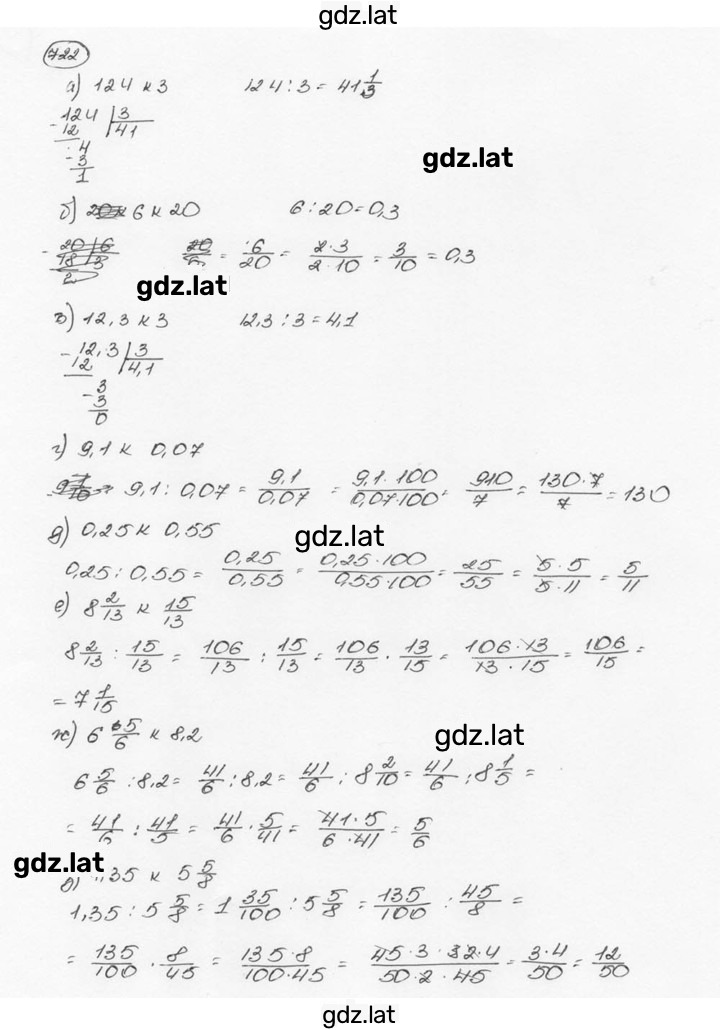 gdz.lat
722
а) 124 к 3 124 : 3 = 41 1/3
- 124 | 3
12 41
4
- 3
1
gdz.lat
б) 6 к 20 6 : 20 = 0,3
= 6/20 = 2·3/2·10 = 3/10 = 0,3
gdz.lat
в) 12,3 к 3 12,3 : 3 = 4,1
- 12,3 | 3
12 4,1
3
- 3
0
г) 9,1 к 0,07
9,1 : 0,07 = 9,1/0,07 = 9,1·100/0,07·100 = 910/7 = 130·7/7 = 130
д) 0,25 к 0,55
gdz.lat
0,25 : 0,55 = 0,25/0,55 = 0,25·100/0,55·100 = 25/55 = 5·5/5·11 = 5/11
е) 8 2/13 к 15/13
8 2/13 : 15/13 = 106/13 : 15/13 = 106/13 · 13/15 = 106·13/13·15 = 106/15 =
= 7 1/15
ж) 6 5/6 к 8,2
gdz.lat
6 5/6 : 8,2 = 41/6 : 8,2 = 41/6 : 8 2/10 = 41/6 : 8 1/5 =
= 41/6 : 41/5 = 41/6 · 5/41 = 41·5/6·41 = 5/6
gdz.lat
,35 к 5 5/8
1,35 : 5 5/8 = 1 35/100 : 5 5/8 = 135/100 : 45/8 =
= 135/100 · 8/45 = 135·8/100·45 = 45·3·2·4/50·2·45 = 3·4/50 = 12/50
gdz.lat